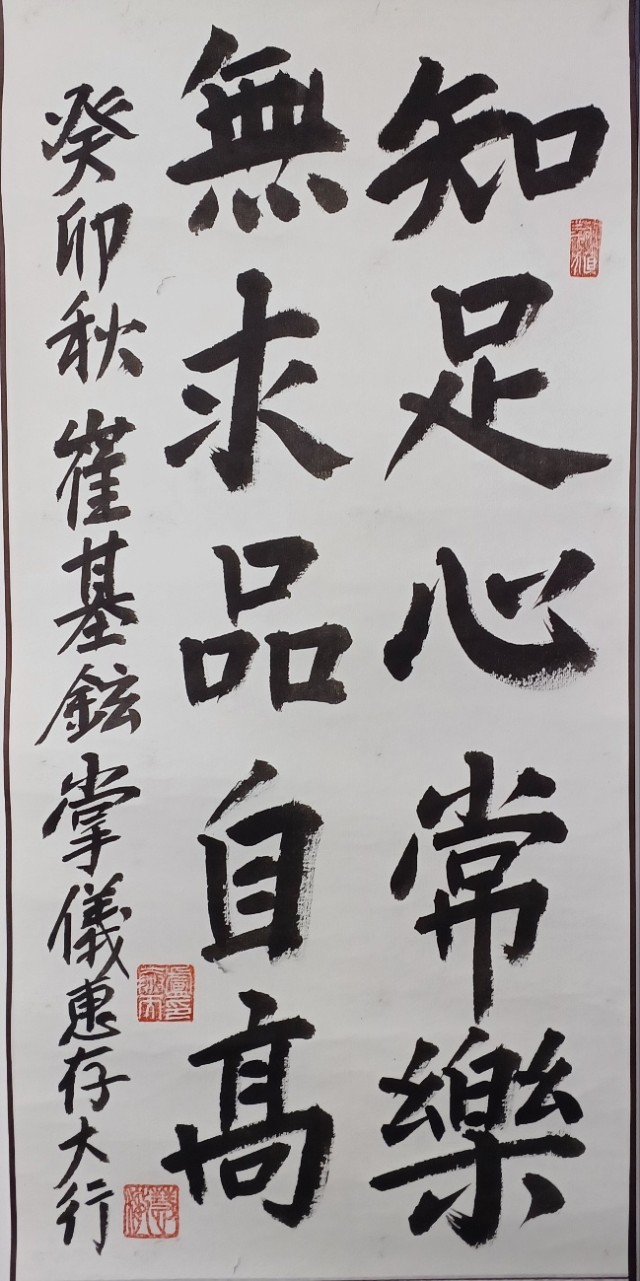 知足心常樂
無求品自高
癸卯秋崔基鉉掌儀惠存大行